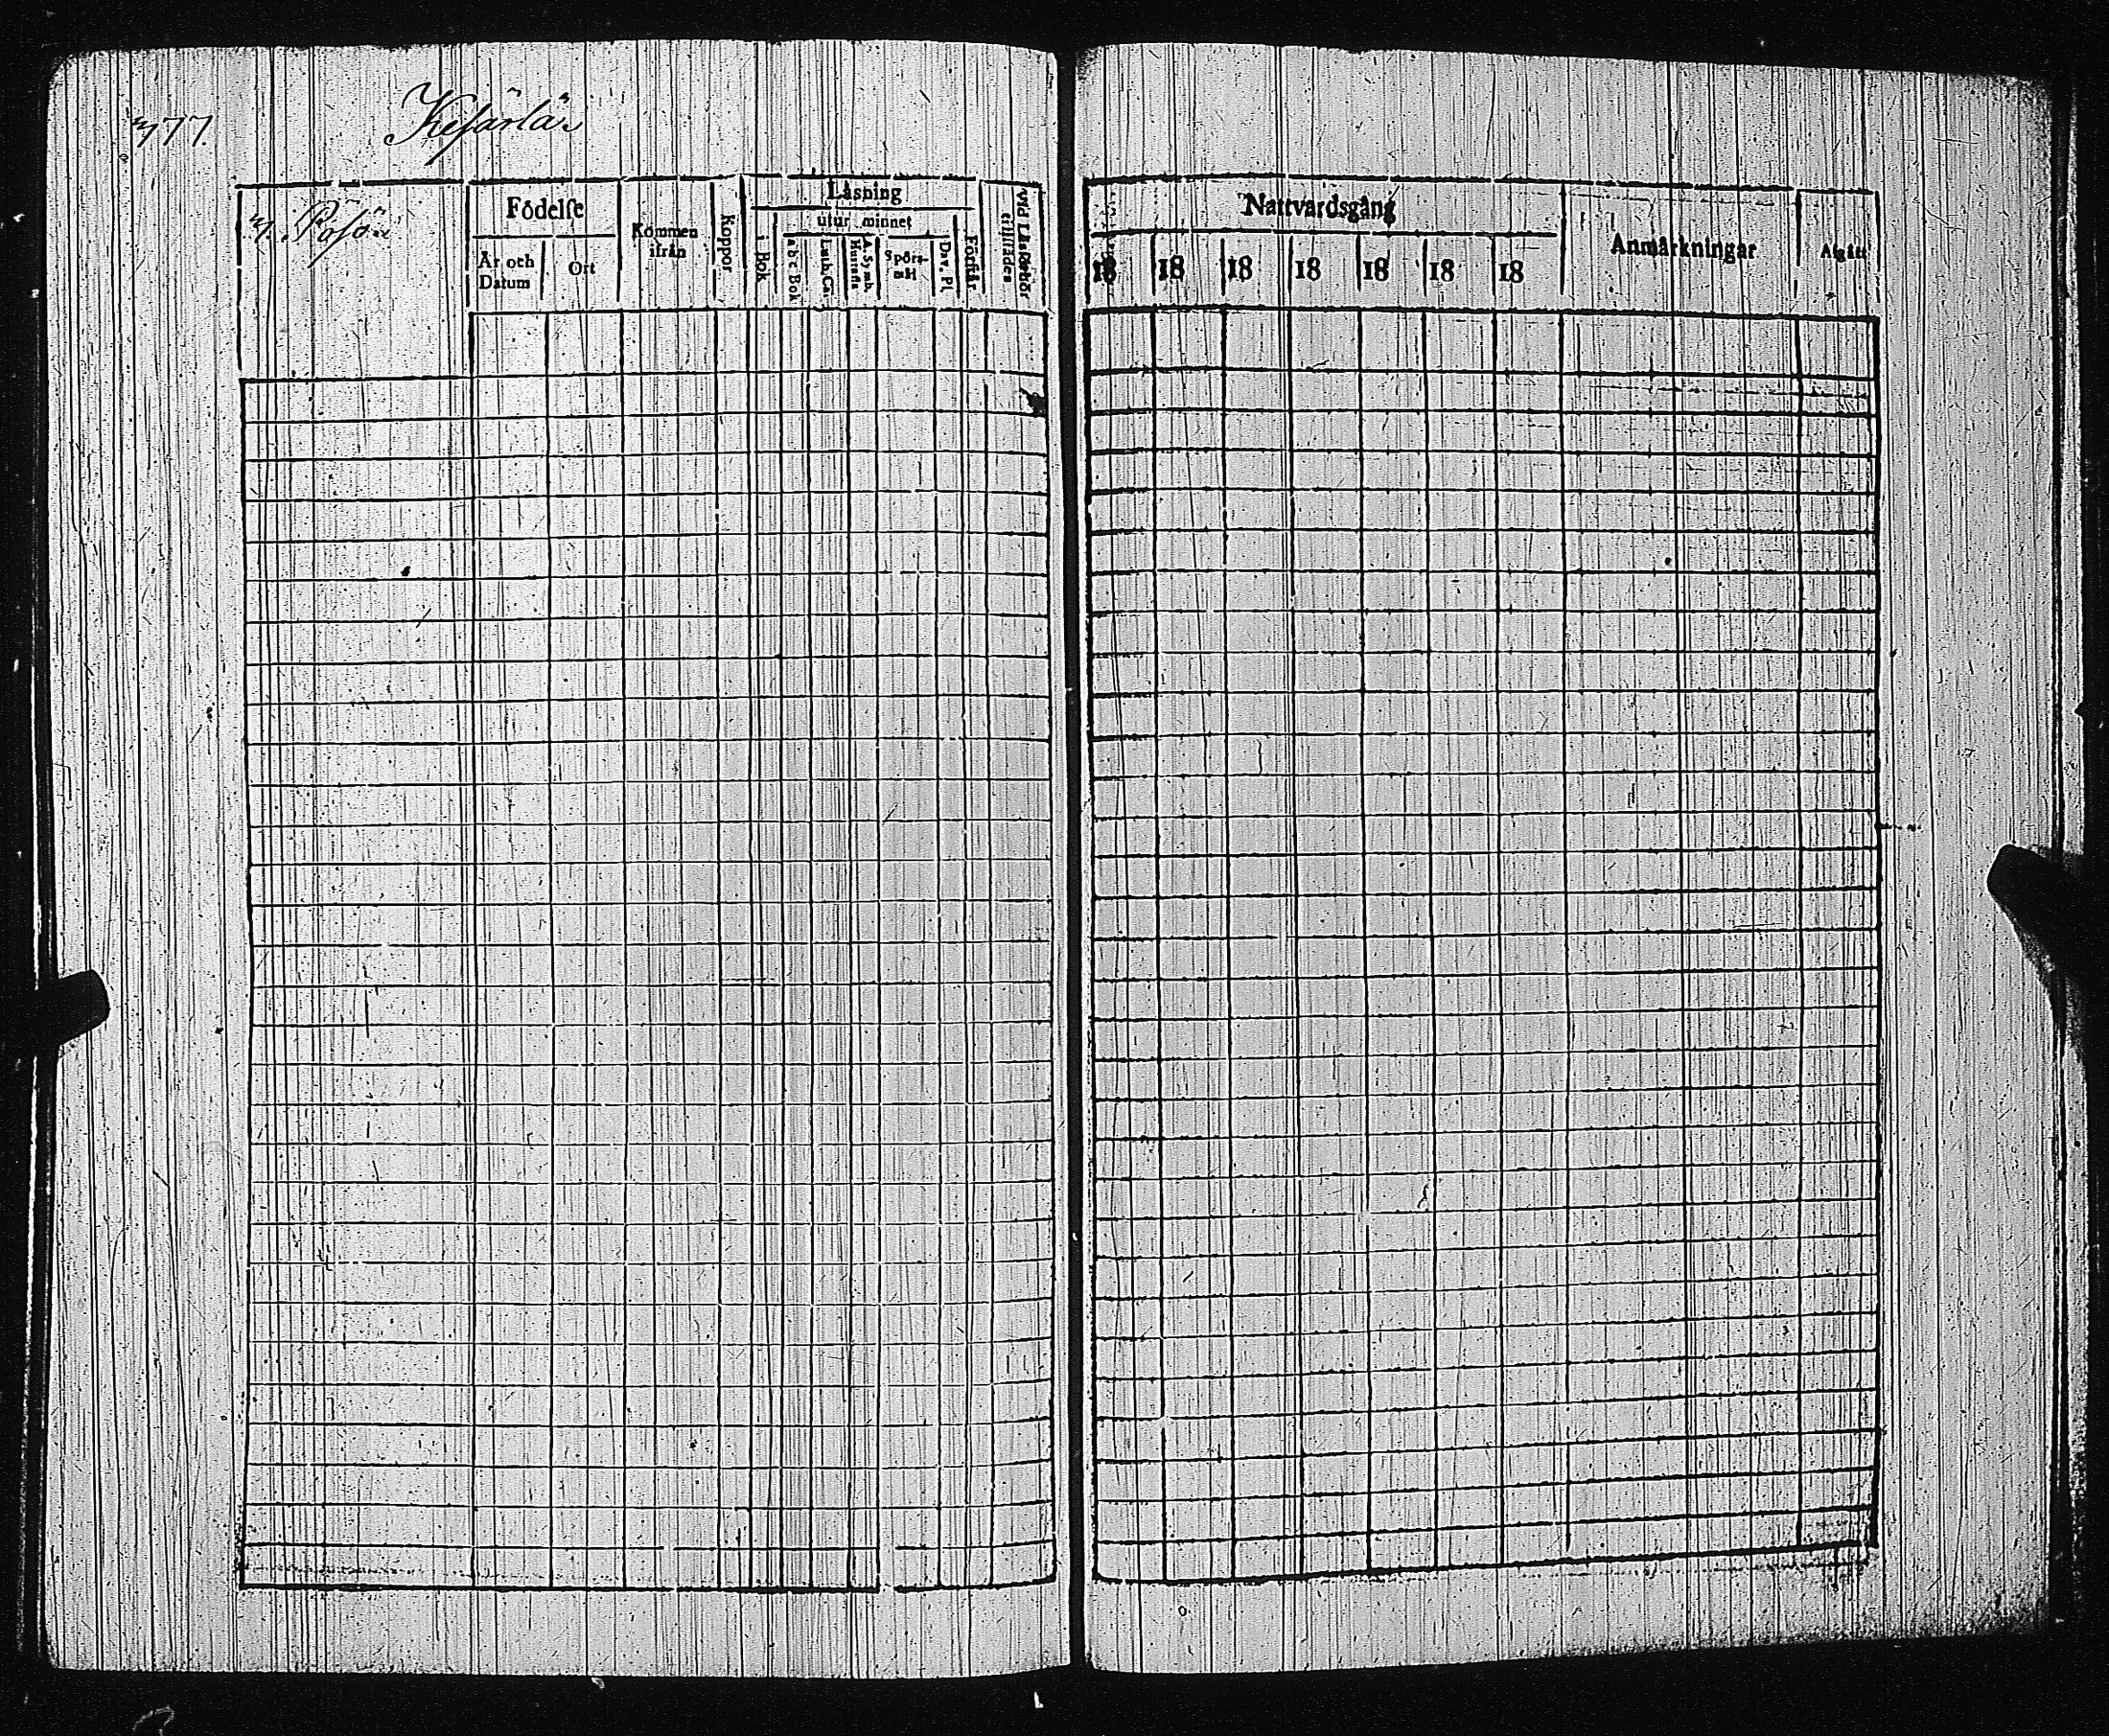 377.
Kesärlä
3. Pösö
Födelse
År och Datum
Ort
Kommen ifrån
Koppor
Läsning
i Bok
utur minnet
a b c Bok
Luth. Ca.
A. Symb.
Hustafla
Spörs-mål
Dav. Ps.
Förstår
vid Läsförhör tillstädes
Nattvardsgång
18 18 18 18 18 18 18
Anmärkningar
Afgått